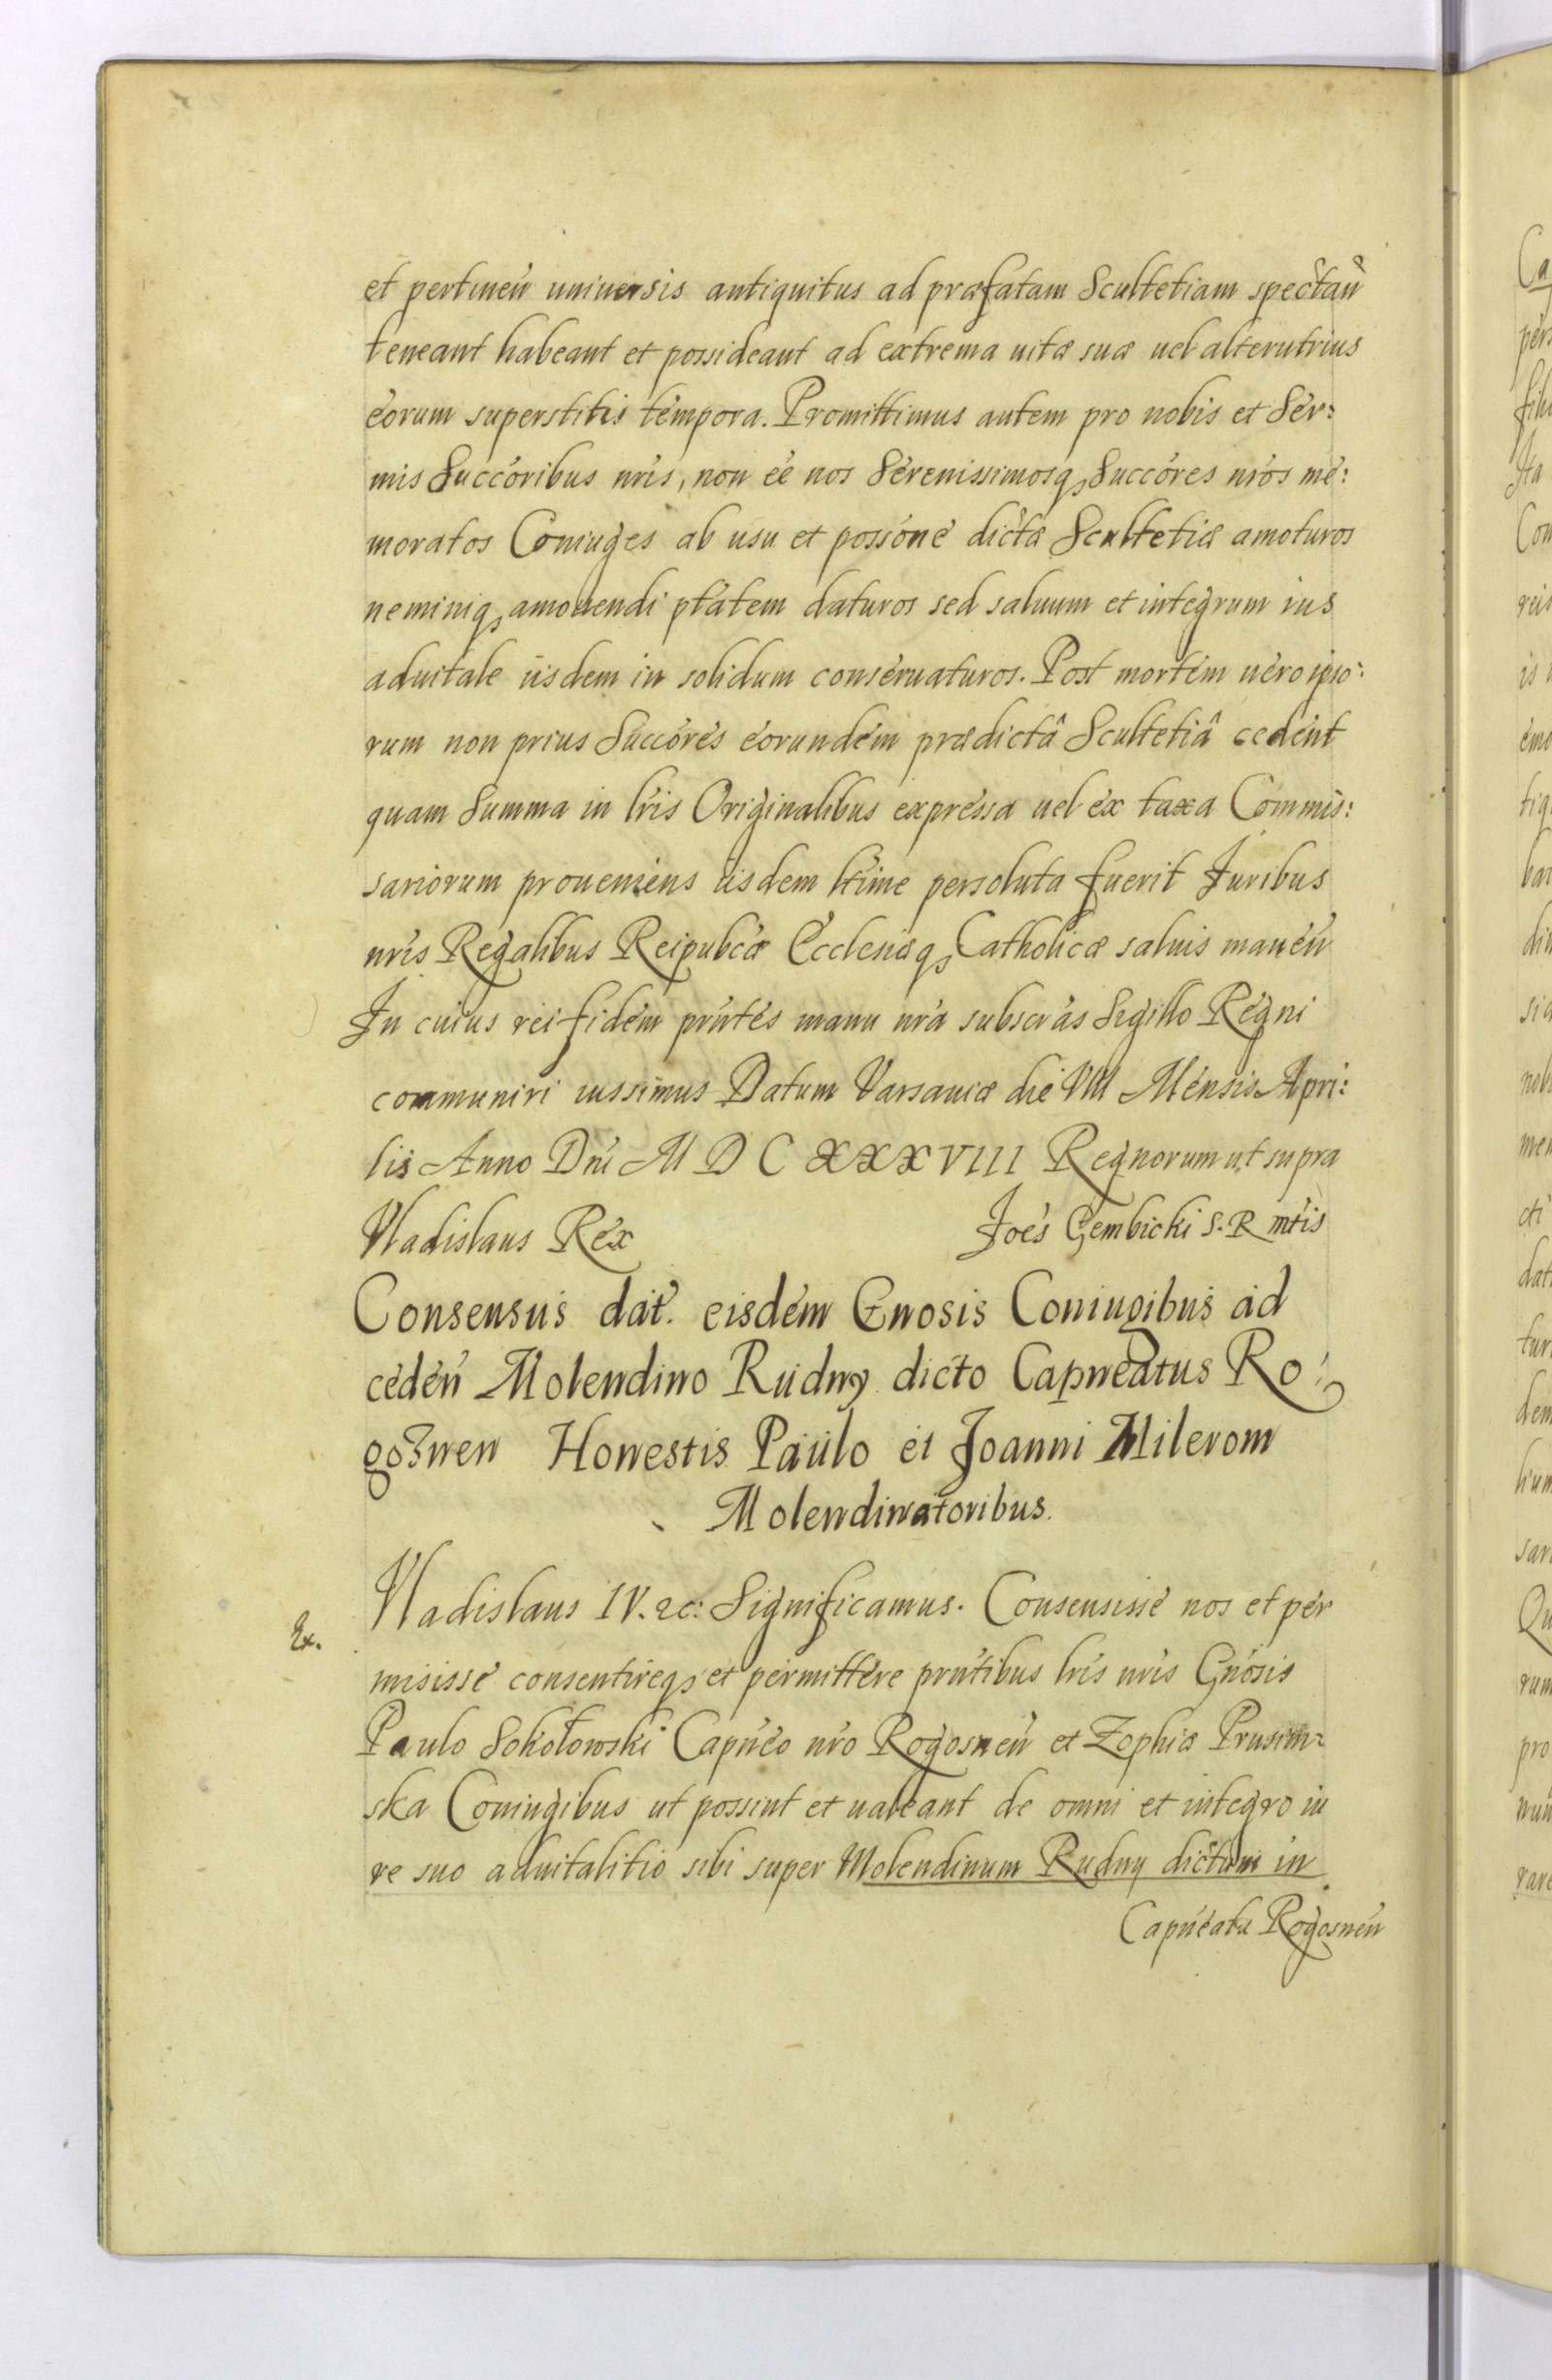 et pertineń uniuersis antiquitus ad præfatam Scultetiam spectań
teneant habeant et possideant ad extrema uitæ suæ uel alterutrius
eorum superstitis tempora. Promittimus autem pro nobis et Ser:
mis Succoribus nris, non eē nos Serenissimosq, Succores nros me:
moratos Coniuges ab usu et possone dictæ Scultetiæ amoturos
neminiq, amouendi ptatem daturos sed saluum et integrum ius
aduitale iisdem in solidum conseruaturos. Post mortem uero ipso:
rum non prius Succores eorundem prædictâ Scultetiâ cedent
quam Summa in lris Originalibus expressa uel ex taxa Commis:
sariorum proueniens iisdem ltime persoluta fuerit Juribus
nris Regalibus Reipubcæ Ecclesiæq, Catholicæ saluis maneń
In cuius rei fidem prntes manu nra subscras Sigillo Regni
communiri iussimus Datum Varsauiæ die VIII Mensis Apri:
lis Anno Dni M D C XXXVIII Regnorum ut supra
Vladislaus Rex Joes Gembicki S. R mtis
Consensus dat. eisdem Gnosis Coniugibus ad
cedeń Molendino Rudny dicto Capneatus Ro:
goznen Honestis Paulo et Joanni Milerom
Molendinatoribus.
Ex.
Vladislaus IV. &c: Significamus. Consensisse nos et per
misisse consentireq, et permittere prntibus lris nris Gnosis
Paulo Sokołowski Capneo nro Rogosneń et Zophiæ Prusim:
ska Coniugibus ut possint et ualeant de omni et integro iu
re suo aduitalitio sibi super Molendinum Rudny dictum in
Capneatu Rogosneń